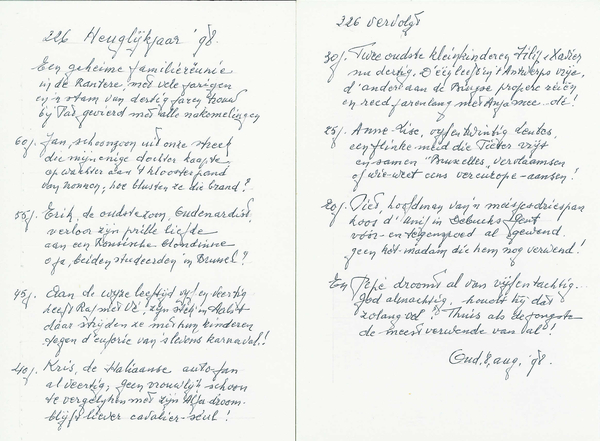 226 Heuglijkjaar '98.
Een geheime familiereünie
in de Rantere, met vele jarigen
en 'n stam van dertig jaren trouw
bij Pas gevierd met alle nakomelingen
60j. Jan, schoonzoon uit onze streek
die mijn enige dochter kaapte
op wachten aan 't kloosterpand
van nonnen; hoe blusten ze die brand?
55j. Erik, de oudste zoon, Oudenardist,
verloor zijn prille liefde
aan een Ronsische blondinne
o ja, beiden studeerden in Brussel?
45j. Aan de wijze leeftijd vijf en veertig
heeft Raf met zijn stek in Aalst
daar strijden ze met hun kinderen
tegen d'euforie van 's levens karnaval!
40j. Kris, de Italiaanse auto-fan
al veertig; geen vrouwlijk schoon
te vergelijken met zijn Alfa-droom
blijft liever cavalier-seul!
226 vervolgt
30j. Twee oudste kleinkinderen Filip, Xavier
nu dertig. D'één leeft in 't Antwerps vrije,
d'ander aan de Brugse propere reien
en reed jarenlang met Anja mee...olé!
25j. Anne-Lise, vijfentwintig lentes,
een flinke meid die Pieter vrijt
en samen "Bruxelles" vervlaamsen
of wie-weet eens vereurope-aansen!
20j. Piet, hoofdman van 'n meisjesdriespan
koos d'Unif in Gent
vóór- en tegenspoed al gewend
geen hot-madam die hem nog verwend!
En Pepé droomt al van vijfentachtig.
God almachtig, houdt hij dat
zolang vol? Thuis als de jongste
de meest verwende van al!
Oud. 8 aug. '98.